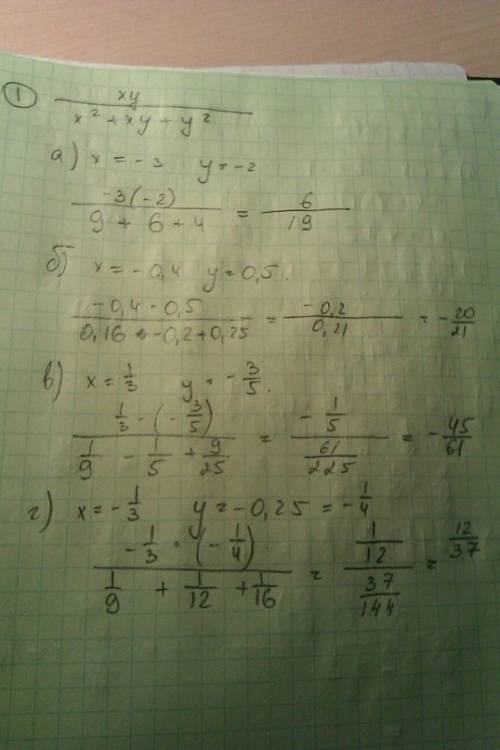 ① xy / (x² + xy + y²)
а) x = -3 y = -2
-3(-2) / (9 + 6 + 4) = 6 / 19
б) x = -0,4 y = 0,5.
-0,4 · 0,5 / (0,16 + -0,2 + 0,25) = -0,2 / 0,21 = -20/21
в) x = 1/3 y = -3/5.
1/3 · (-3/5) / (1/9 - 1/5 + 9/25) = -1/5 / 61/225 = -45/61
г) x = -1/3 y = -0,25 = -1/4
-1/3 · (-1/4) / (1/9 + 1/12 + 1/16) = 1/12 / 37/144 = 12/37